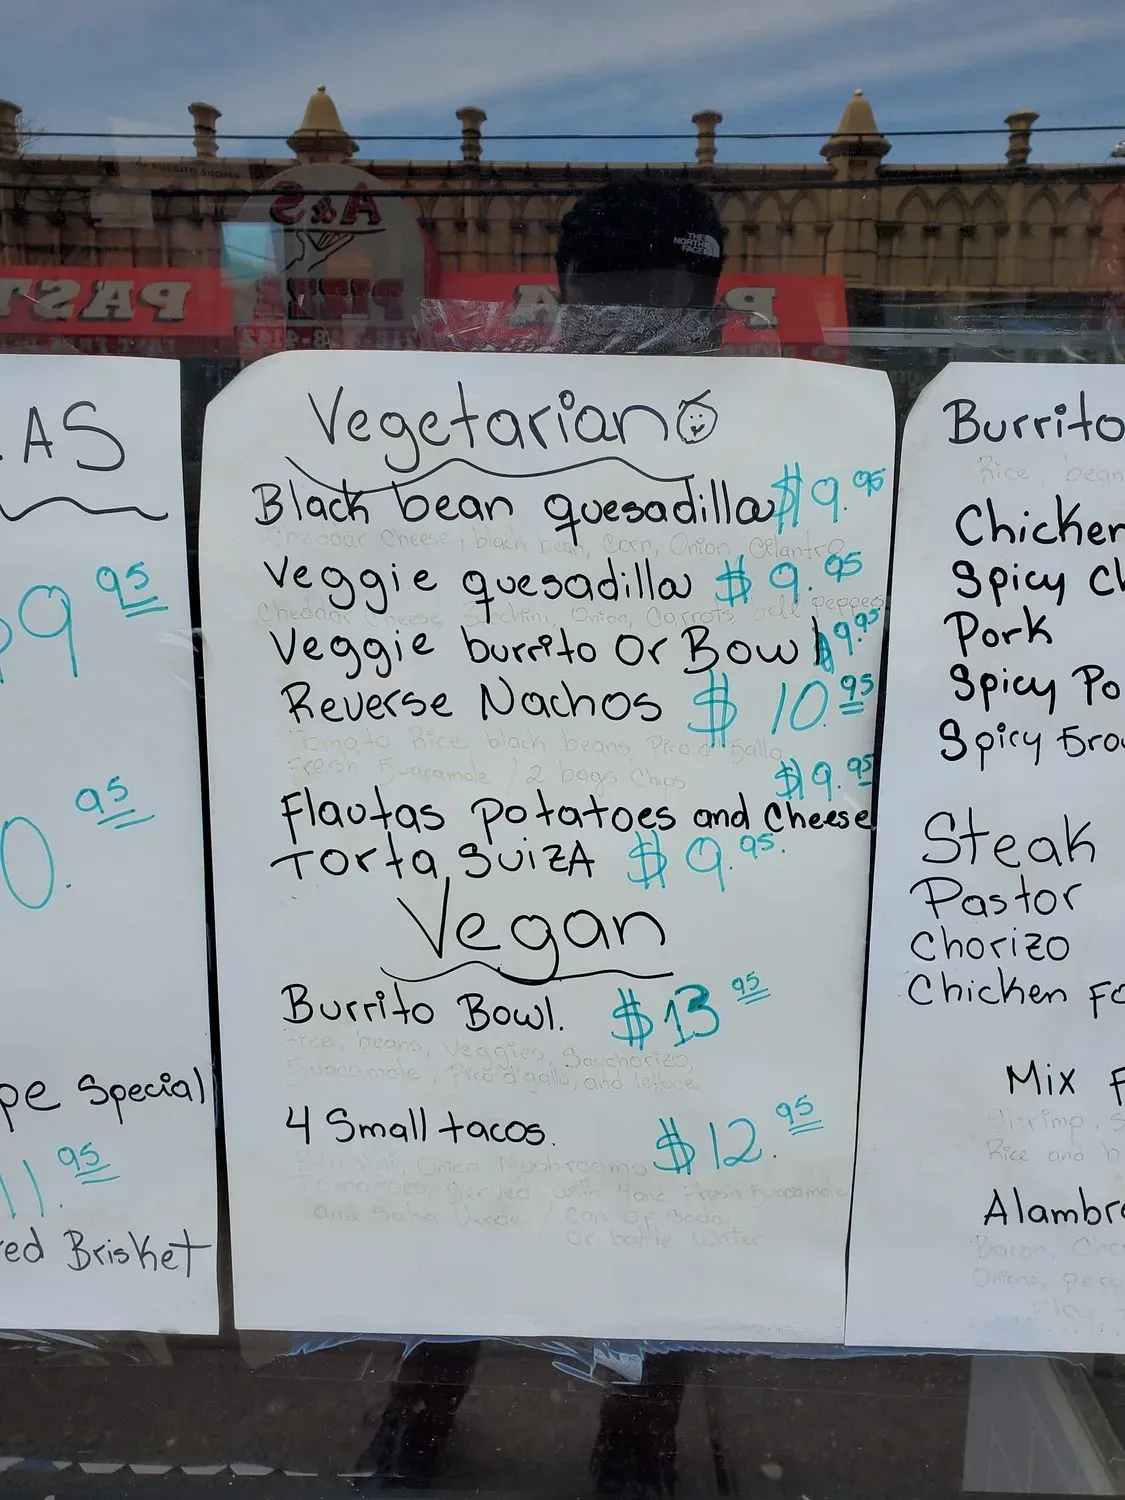 A&S
PAST
PIZZA
THE
NORTH
FACE
AS
9.95
0.95
pe Special
11.95
red Brisket
Vegetarian
Black bean quesadilla $9.95
Cheddar Cheese, black bean, Corn, Onion, Cilantro
Veggie quesadilla $9.95
Cheddar Cheese, Zucchini, Onion, Carrots, bell Pepper
Veggie burrito Or Bowl $9.95
Reverse Nachos $10.95
Tomato Rice, black beans, Pico d' Gallo
Fresh Guacamole / 2 bags Chips
$9.95
Flautas Potatoes and Cheese
Torta Suiza $9.95
Vegan
Burrito Bowl. $13.95
Rice, beans, Veggies, Soychorizo,
Guacamole, Pico d'gallo, and lettuce
4 Small tacos. $12.95
Onion Mushrooms
Tomatoes, Served with 4oz Fresh Guacamole
and Salsa Verde / Can of Soda
Or bottle water
Burrito
Rice, bean
Chicken
Spicy Ch
Pork
Spicy Po
Spicy Gro
Steak
Pastor
Chorizo
Chicken Fa
Mix F
Shrimp, S
Rice and b
Alambre
Bacon, Cho
Onions, pepp